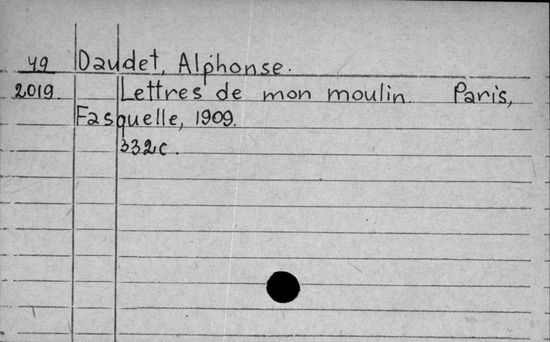 49 Daudet, Alphonse.
2019. Lettres de mon moulin. Paris,
Fasquelle, 1909.
332 c.